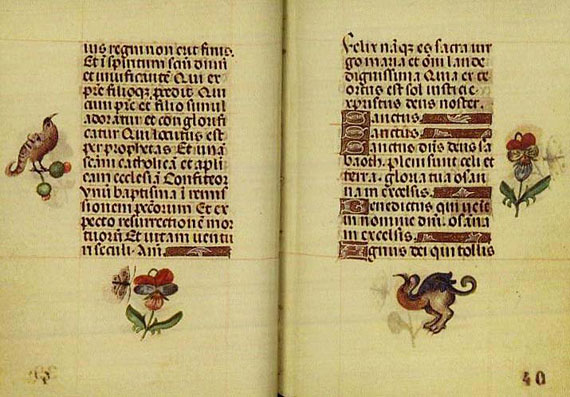 ius regni non erit finis.
Et i spiritum scm dnm
et vivificante Qui ex
pre filioqz predit Qui
cum pre et filio simul
adoratur et conglorifi
catur Qui locutus est
per prophetas Et una
scam catholica et apli
cam ecclesia Confiteor
unu baptisma i remissi
onem peccorum Et ex
pecto resurrectione mor
tuorum Et vitam ventu
ri seculi. Am.
Felix naqz es sacra vir
go maria et omi laude
dignissima Quia ex te
ortus est sol iusticie
xpristus deus noster.
Sanctus
Sanctus
Sanctus dns deus sa
baoth. pleni sunt celi et
terra. gloria tua osan
na in excelsis.
Benedictus qui venit
in nomine dni. osana
in excelsis.
Agnus dei qui tollis
40